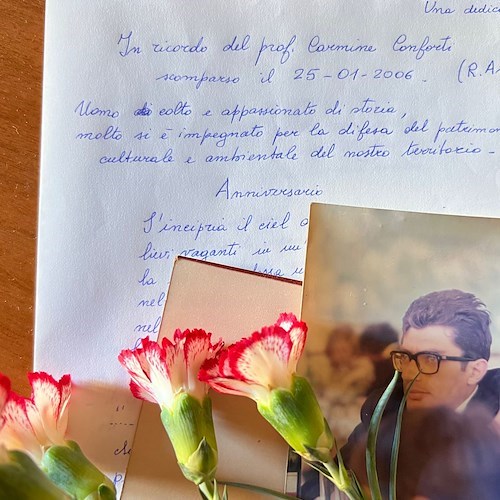 Una dedic
In ricordo del prof. Carmine Conforti
scomparso il 25-01-2006. (R.A.
Uomo di colto e appassionato di storia,
molto si è impegnato per la difesa del patrimon
culturale e ambientale del nostro territorio -
Anniversario
S'incipria il ciel
lievi vaganti in un
la
nel
nel